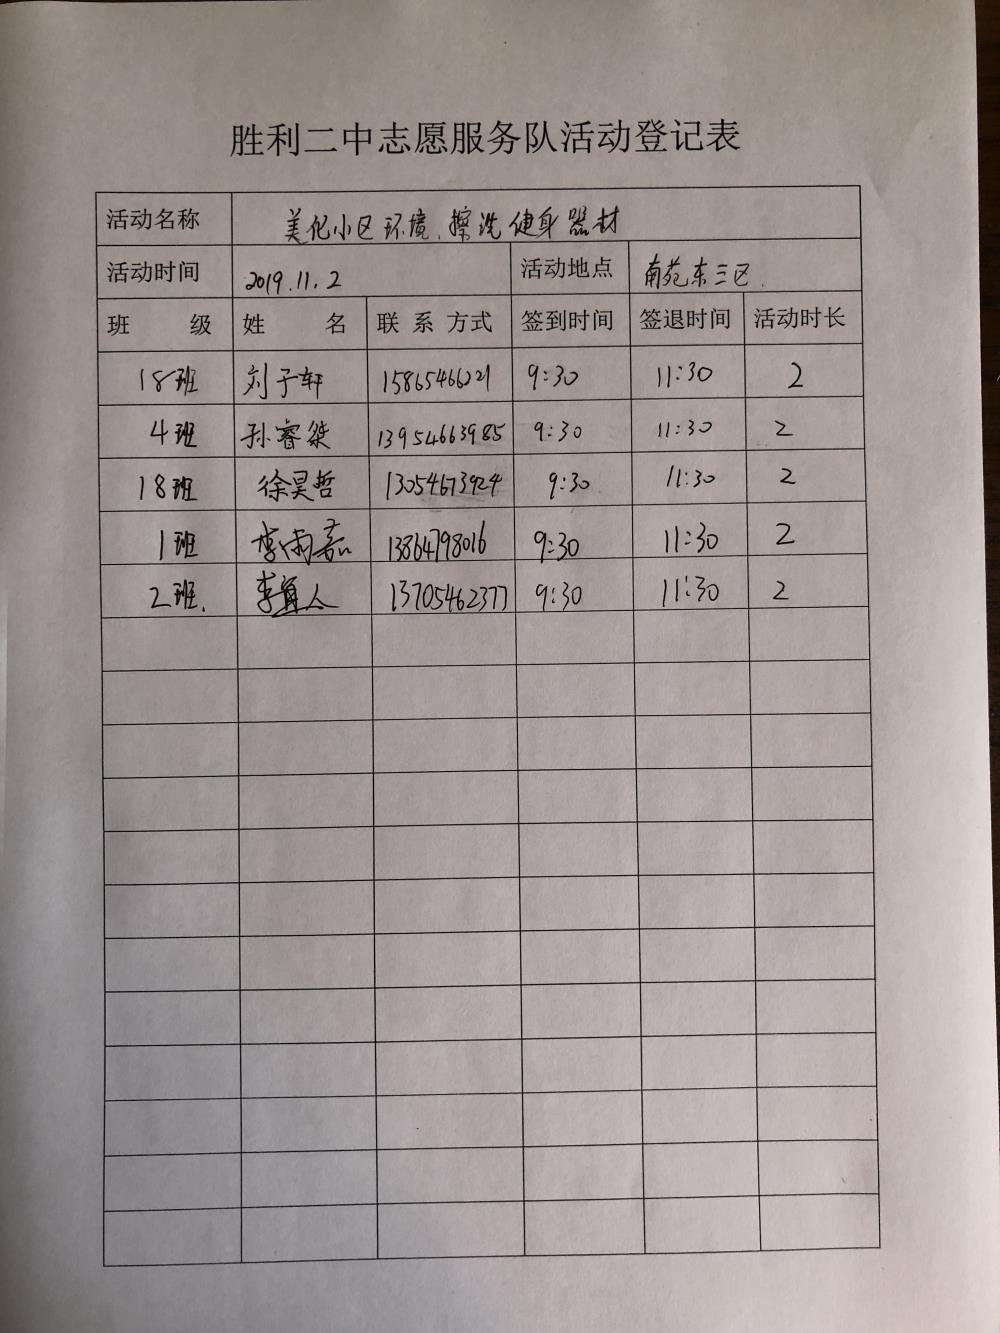 胜利二中志愿服务队活动登记表
活动名称 美化小区环境、擦洗健身器材
活动时间 2019.11.2 活动地点 南苑东三区.
班 级 姓 名 联 系 方式 签到时间 签退时间 活动时长
18班 刘子轩 9:30 11:30 2
4班 孙睿桀 13954663985 9:30 11:30 2
18班 徐昊哲 13054673924 9:30 11:30 2
1班 李雨嘉 13864798016 9:30 11:30 2
2班. 李 人 13705462377 9:30 11:30 2